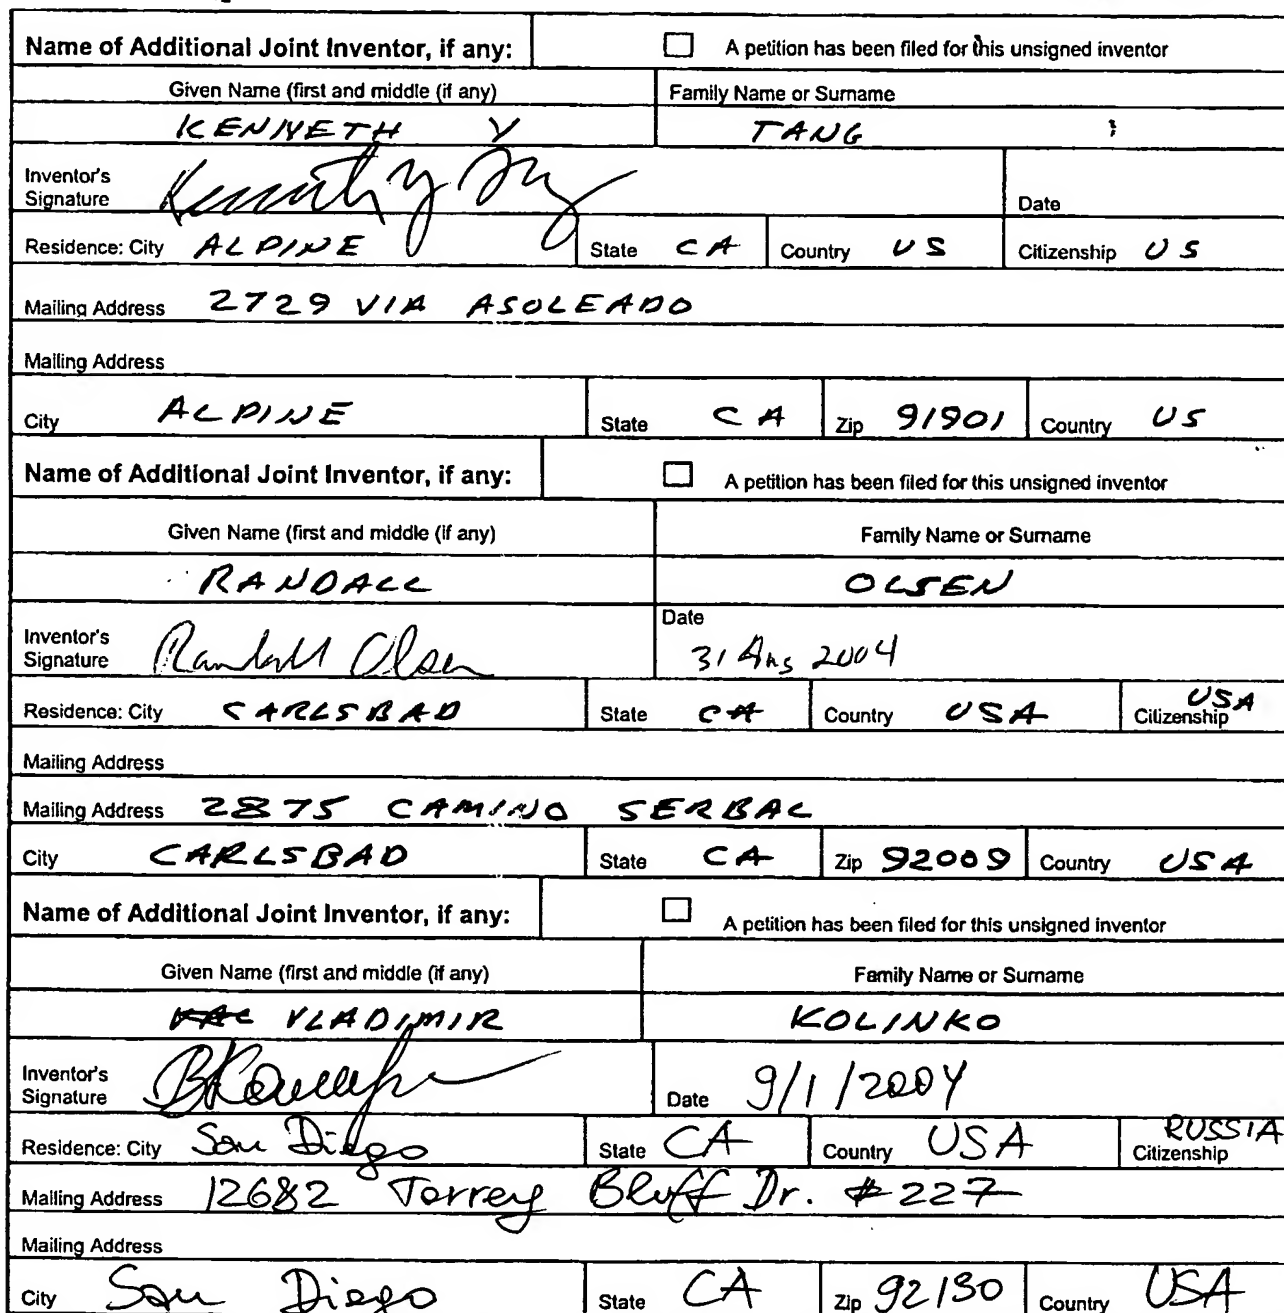 Name of Additional Joint Inventor, if any: ☐ A petition has been filed for this unsigned inventor
Given Name (first and middle (if any) Family Name or Surname
KENNETH Y TANG
Inventor's
Signature Date
Residence: City ALPINE State CA Country US Citizenship US
Mailing Address 2729 VIA ASOLEADO
Mailing Address
City ALPINE State CA Zip 91901 Country US
Name of Additional Joint Inventor, if any: ☐ A petition has been filed for this unsigned inventor
Given Name (first and middle (if any) Family Name or Surname
RANDALL OLSEN
Inventor's
Signature Randall Olsen Date 31 Aug 2004
Residence: City CARLSBAD State CA Country USA Citizenship USA
Mailing Address
Mailing Address 2875 CAMINO SERBAL
City CARLSBAD State CA Zip 92009 Country USA
Name of Additional Joint Inventor, if any: ☐ A petition has been filed for this unsigned inventor
Given Name (first and middle (if any) Family Name or Surname
VLADIMIR KOLINKO
Inventor's
Signature Date 9/1/2004
Residence: City San Diego State CA Country USA Citizenship RUSSIA
Mailing Address 12682 Torrey Bluff Dr. #227
Mailing Address
City San Diego State CA Zip 92130 Country USA